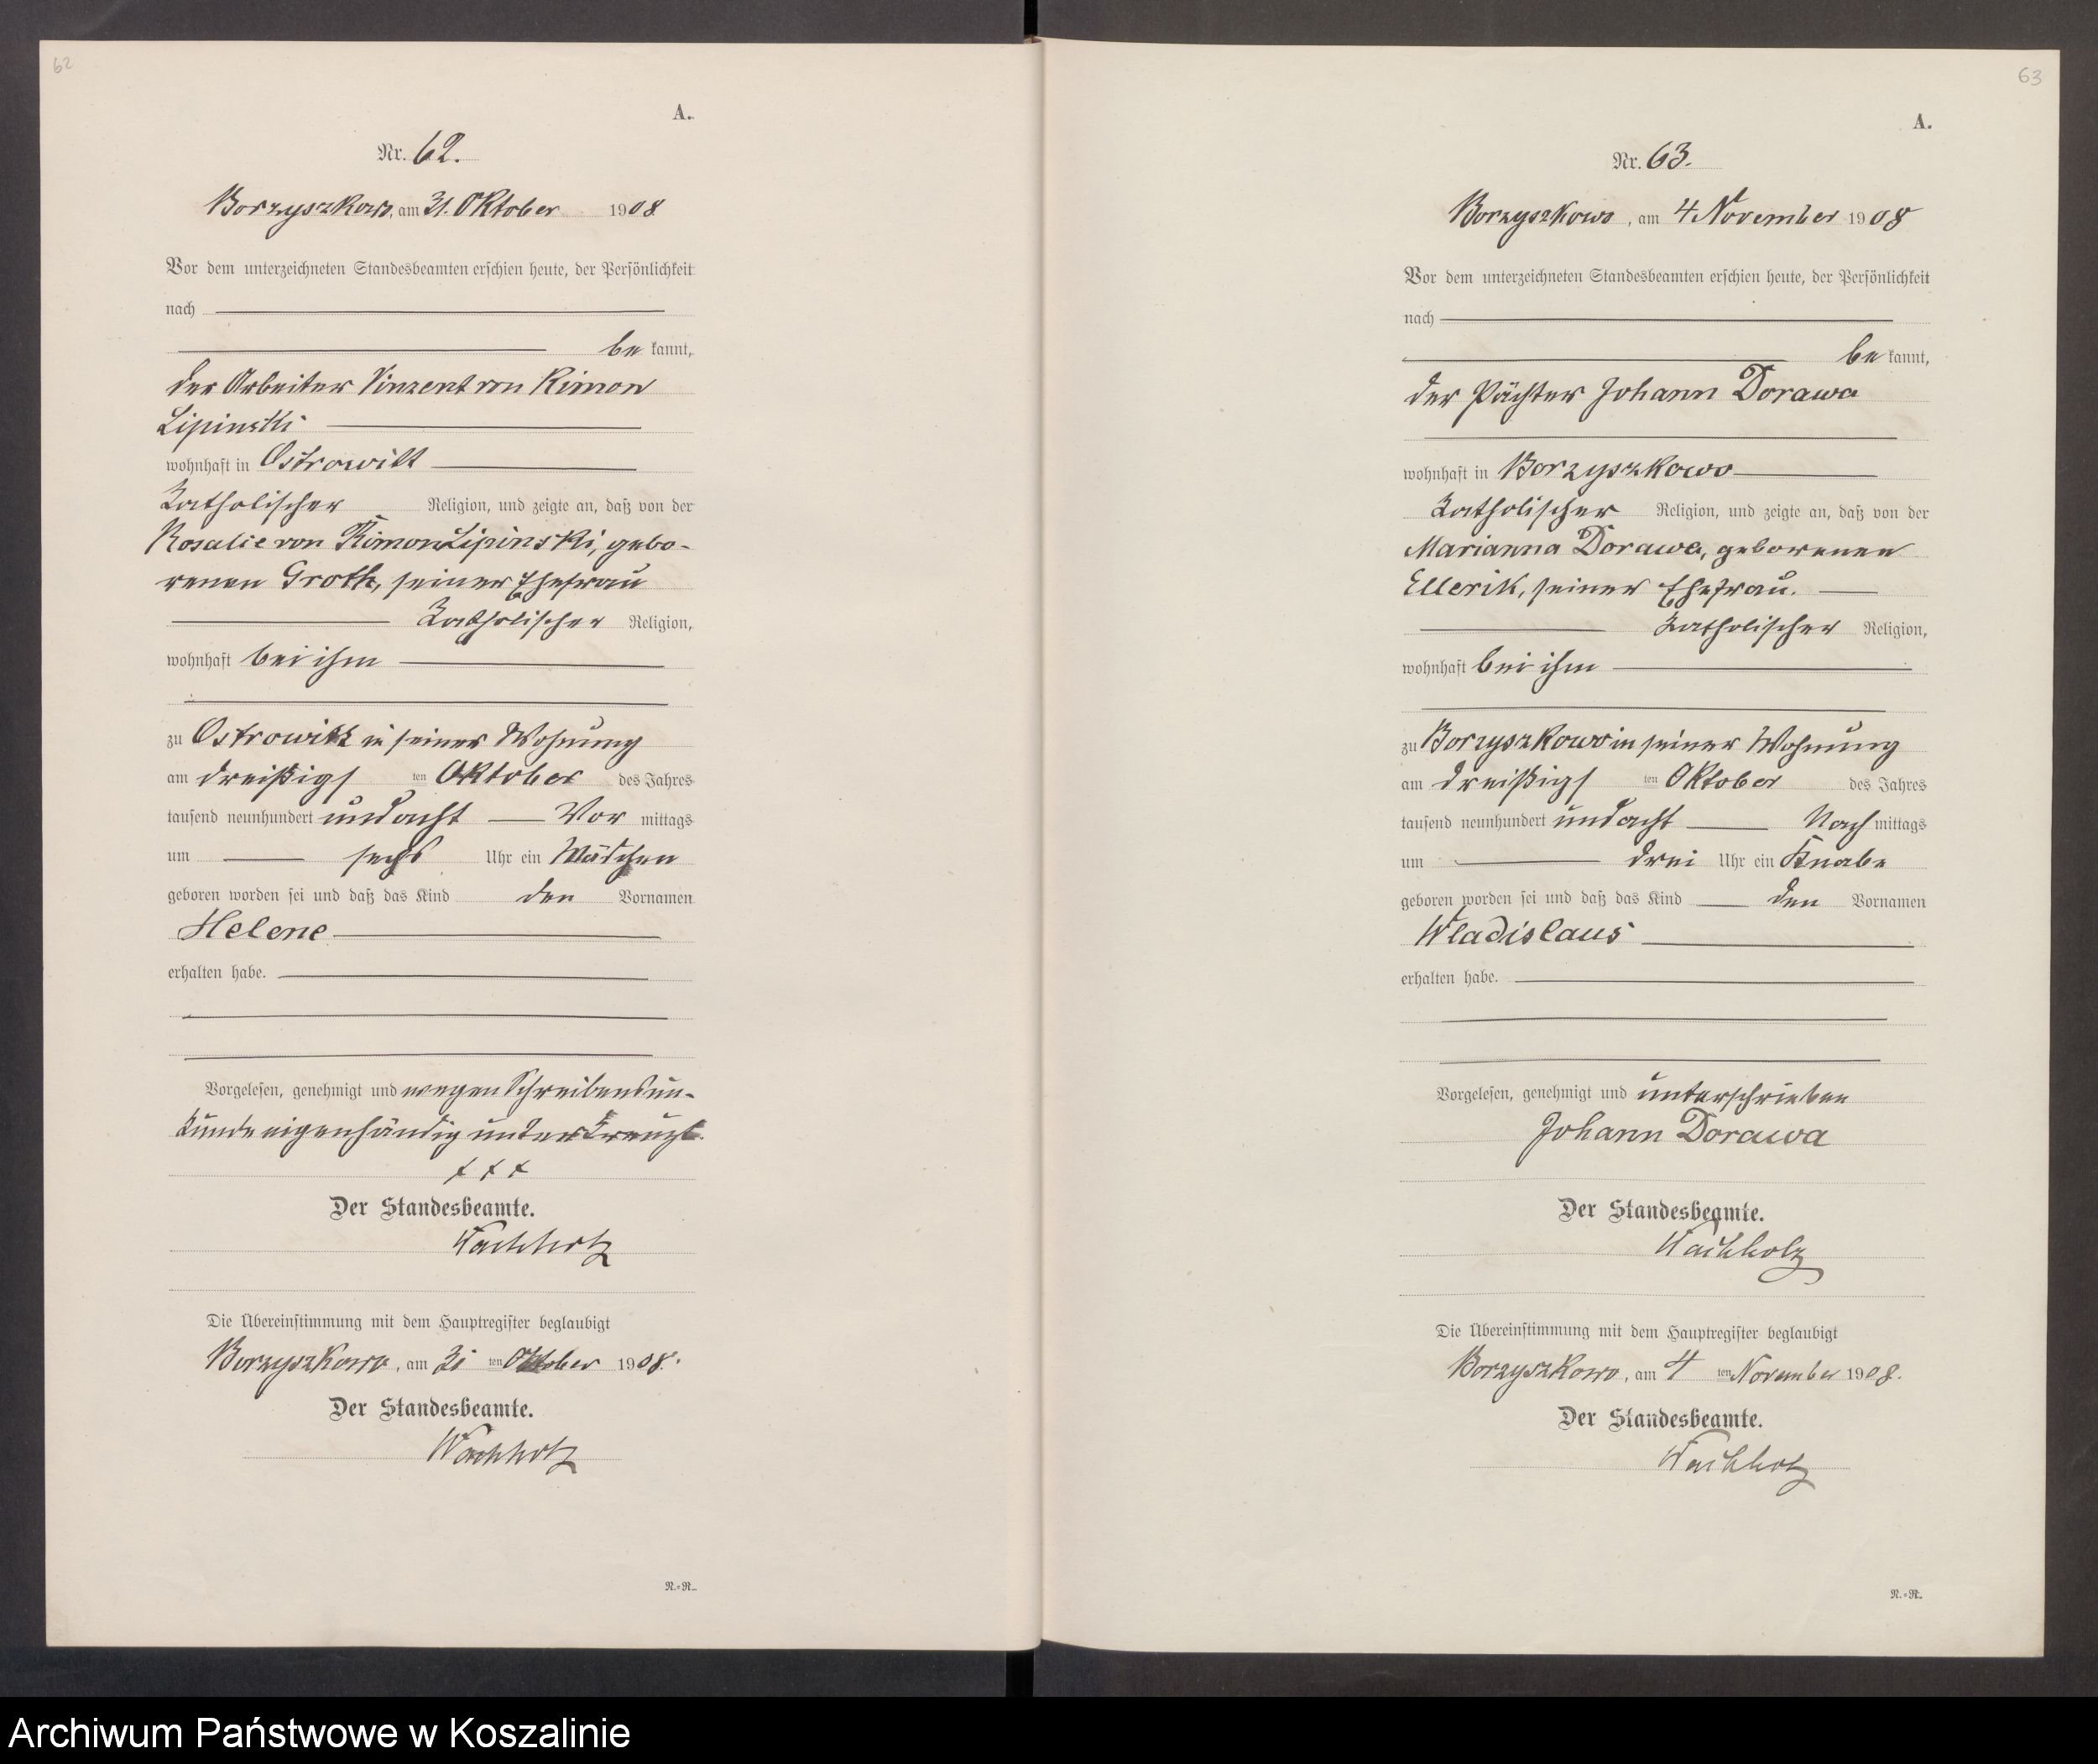 62
A.
Nr. 62.
Borzyszkowo, am 31. Oktober 1908
Vor dem unterzeichneten Standesbeamten erschien heute, der Persönlichkeit
nach
be kannt,
der Arbeiter Vinzent von Rimon
Lipinski
wohnhaft in Ostrowitt
katholischer Religion, und zeigte an, daß von der
Rosalie von Rimon Lipinski, gebo-
renen Groth, seiner Ehefrau
katholischer Religion,
wohnhaft bei ihm
zu Ostrowitt in seiner Wohnung
am dreißigs ten Oktober des Jahres
tausend neunhundert und acht Vor mittags
um sechs Uhr ein Mädchen
geboren worden sei und daß das Kind den Vornamen
Helene
erhalten habe.
Vorgelesen, genehmigt und wegen Schreibensun-
kunde eigenhändig unterkreuzt.
+ + +
Der Standesbeamte.
Wachholz
Die Übereinstimmung mit dem Hauptregister beglaubigt
Borzyszkowo, am 31 ten Oktober 1908.
Der Standesbeamte.
Wachholz
N.-R.
63
A.
Nr. 63.
Borzyszkowo, am 4 November 1908
Vor dem unterzeichneten Standesbeamten erschien heute, der Persönlichkeit
nach
be kannt,
der Pächter Johann Dorawa
wohnhaft in Borzyszkowo
katholischer Religion, und zeigte an, daß von der
Marianna Dorawa, geborenen
Ellerik, seiner Ehefrau.
katholischer Religion,
wohnhaft bei ihm
zu Borzyszkowo in seiner Wohnung
am dreißigs ten Oktober des Jahres
tausend neunhundert und acht Nach mittags
um drei Uhr ein Knabe
geboren worden sei und daß das Kind den Vornamen
Wladislaus
erhalten habe.
Vorgelesen, genehmigt und unterschrieben
Johann Dorawa
Der Standesbeamte.
Wachholz
Die Übereinstimmung mit dem Hauptregister beglaubigt
Borzyszkowo, am 4 ten November 1908.
Der Standesbeamte.
Wachholz
N.-R.
Archiwum Państwowe w Koszalinie